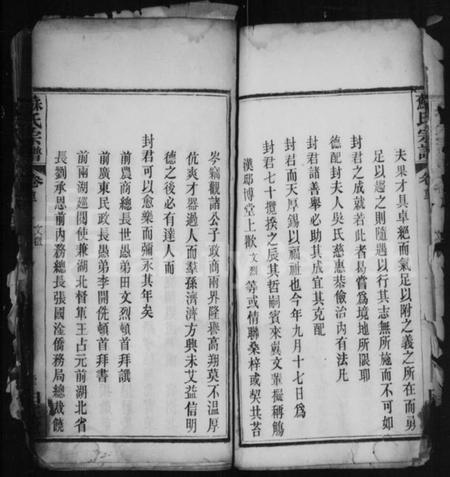 夫果才具卓絕而氣足以附之義之所在而勇
足以趨之則隨遇以行其志無所施而不可如
封君之成就若此者曷嘗為境地所限耶
德配封夫人吳氏慈惠恭儉治內有法凡
封君諸善舉必助其成宜其克配
封君而天厚錫以福祉也今年九月十七日為
封君七十攬揆之辰其哲嗣賓來冀文輩擬稱觴
漢邸博堂上歡文烈等或情聯桑梓或契其苔
岑竊觀諸公子政商兩界隆譽高翔莫不溫厚
伉爽才器過人而羣孫濟濟方興未艾益信明
德之後必有達人而
封君可以愈樂而彌永其年矣
前農商總長世愚弟田文烈頓首拜譔
前廣東民政長愚弟李開侁頓首拜書
前兩湖巡閱使兼湖北督軍王占元前湖北省
長劉承恩前內務總長張國淦僑務局總裁饒
蘇氏宗譜
卷首
文徵